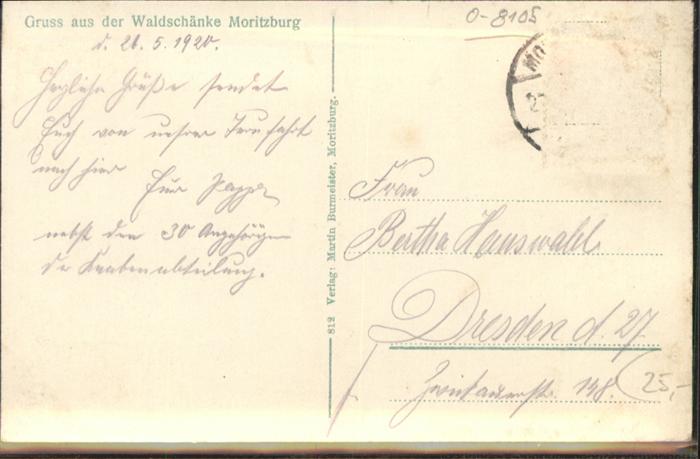 Gruss aus der Waldschänke Moritzburg
d. 21.5.1920.
Herzliche Grüße sendet
Euch von unsrer Turnfahrt
nach hier Euer Pappa
nebst den 30 Angehörigen
der Knabenabteilung.
812 Verlag: Martin Burmeister, Moritzburg.
0-8105
MO
Frau
Bertha Hauswald
Dresden d. 27
Zwickauerstr. 148.
25,-